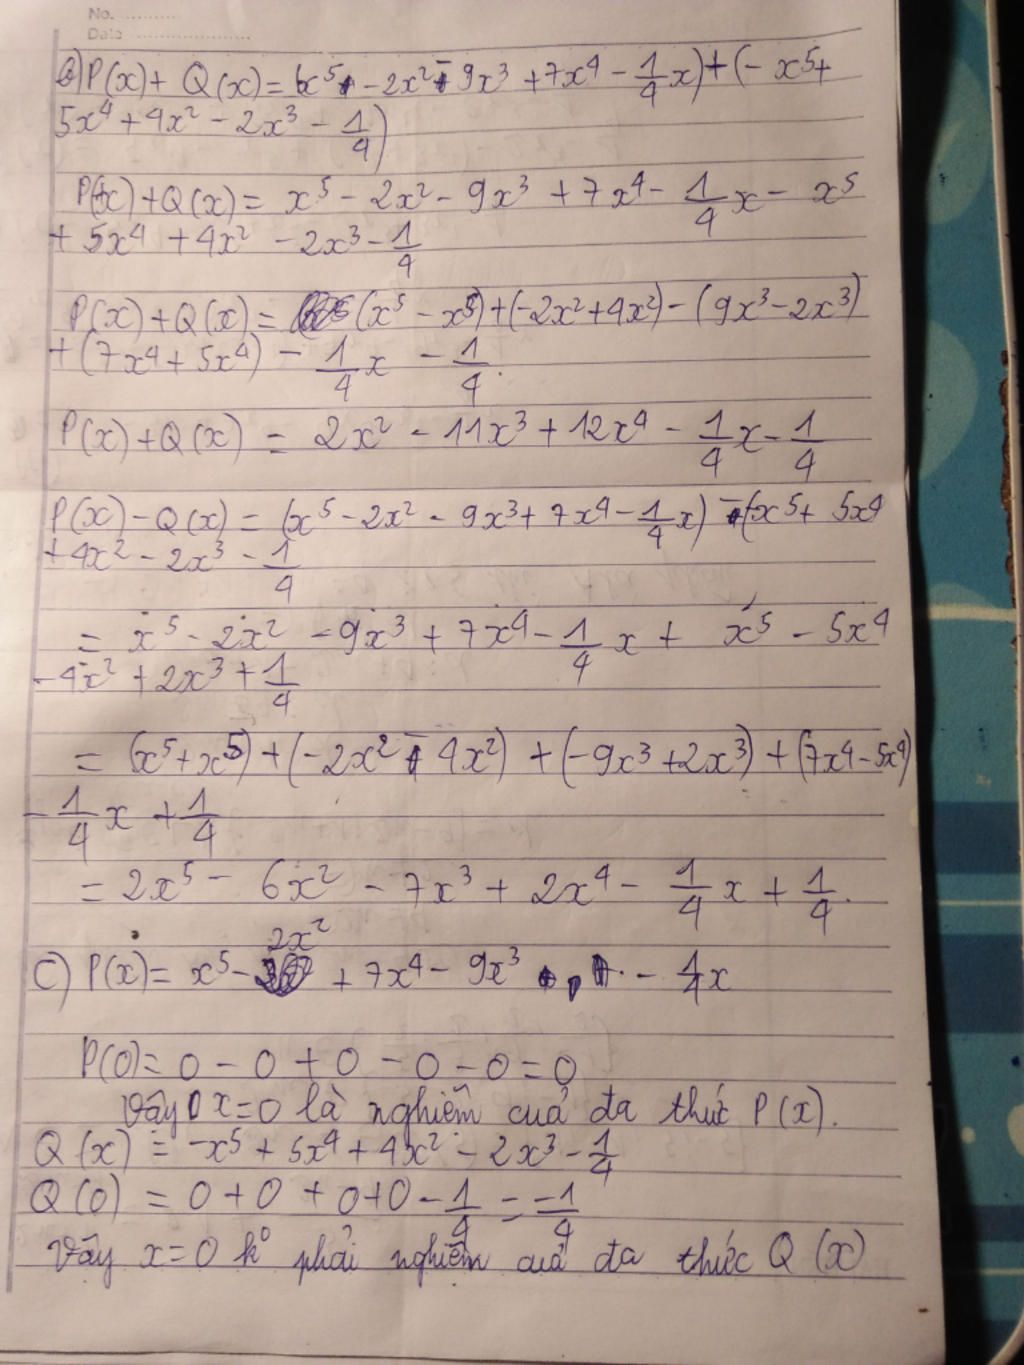 No. ............
Date ......................
b) P(x) + Q(x) = (x⁵ - 2x² - 9x³ + 7x⁴ - 1/4 x) + (- x⁵ +
5x⁴ + 4x² - 2x³ - 1/4)
P(x) + Q(x) = x⁵ - 2x² - 9x³ + 7x⁴ - 1/4 x - x⁵
+ 5x⁴ + 4x² - 2x³ - 1/4
P(x) + Q(x) = (x⁵ - x⁵) + (-2x² + 4x²) - (9x³ - 2x³)
+ (7x⁴ + 5x⁴) - 1/4 x - 1/4.
P(x) + Q(x) = 2x² - 11x³ + 12x⁴ - 1/4 x - 1/4
P(x) - Q(x) = (x⁵ - 2x² - 9x³ + 7x⁴ - 1/4 x) - (-x⁵ + 5x⁴
+ 4x² - 2x³ - 1/4
= x⁵ - 2x² - 9x³ + 7x⁴ - 1/4 x + x⁵ - 5x⁴
- 4x² + 2x³ + 1/4
= (x⁵ + x⁵) + (-2x² - 4x²) + (-9x³ + 2x³) + (7x⁴ - 5x⁴)
- 1/4 x + 1/4
= 2x⁵ - 6x² - 7x³ + 2x⁴ - 1/4 x + 1/4.
c) P(x) = x⁵ - 2x² + 7x⁴ - 9x³ - 1/4 x
P(0) = 0 - 0 + 0 - 0 - 0 = 0
Vậy x = 0 là nghiệm cuả đa thức P(x).
Q(x) = -x⁵ + 5x⁴ + 4x² - 2x³ - 1/4
Q(0) = 0 + 0 + 0 + 0 - 1/4 = -1/4
Vậy x = 0 k⁰ phải nghiệm cuả đa thức Q(x)